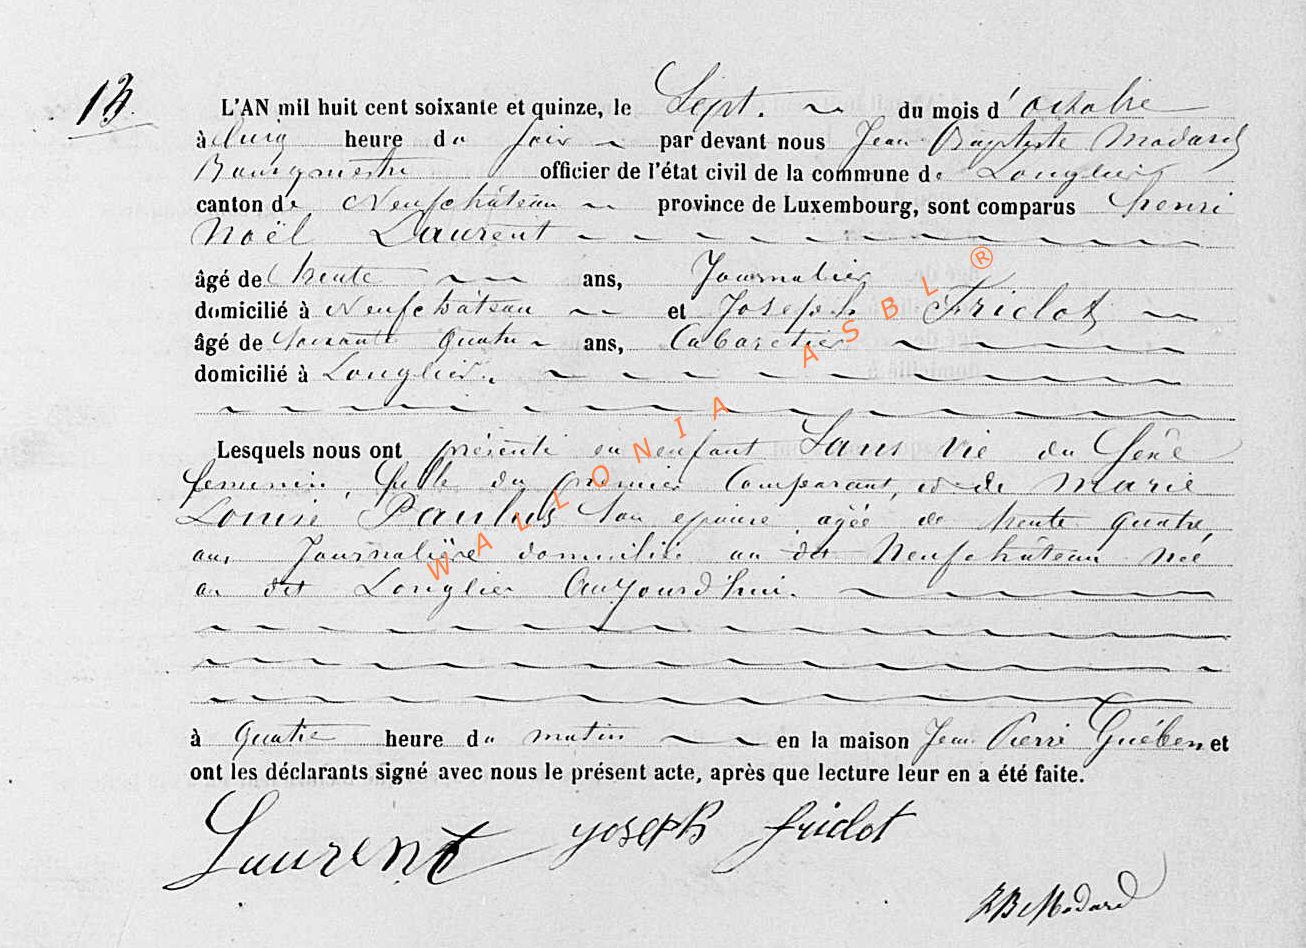 13.
L'AN mil huit cent soixante et quinze, le Sept. du mois d' octobre
à cinq heure du soir par devant nous Jean Baptiste Modard
Bourgmestre officier de l'état civil de la commune de Longlier
canton de Neufchâteau province de Luxembourg, sont comparus Henri
Noël Laurent
âgé de trente ans, Journalier
domicilié à Neufchâteau et Joseph Fridot
âgé de soixante quatre ans, Cabaretier
domicilié à Longlier.
Lesquels nous ont présenté un enfant Sans vie du Sexe
femenin, fille du premier Comparant, et de Marie
Louise Paulus son epouse agée de trente quatre
ans Journalière domicilié au dit Neufchâteau née
au dit Longlier Aujourd'hui.
à quatre heure du matin en la maison Jean Pierre Guében et
ont les déclarants signé avec nous le présent acte, après que lecture leur en a été faite.
Laurent Joseph fridot
JB Modard
WALLONIA ASBL ®